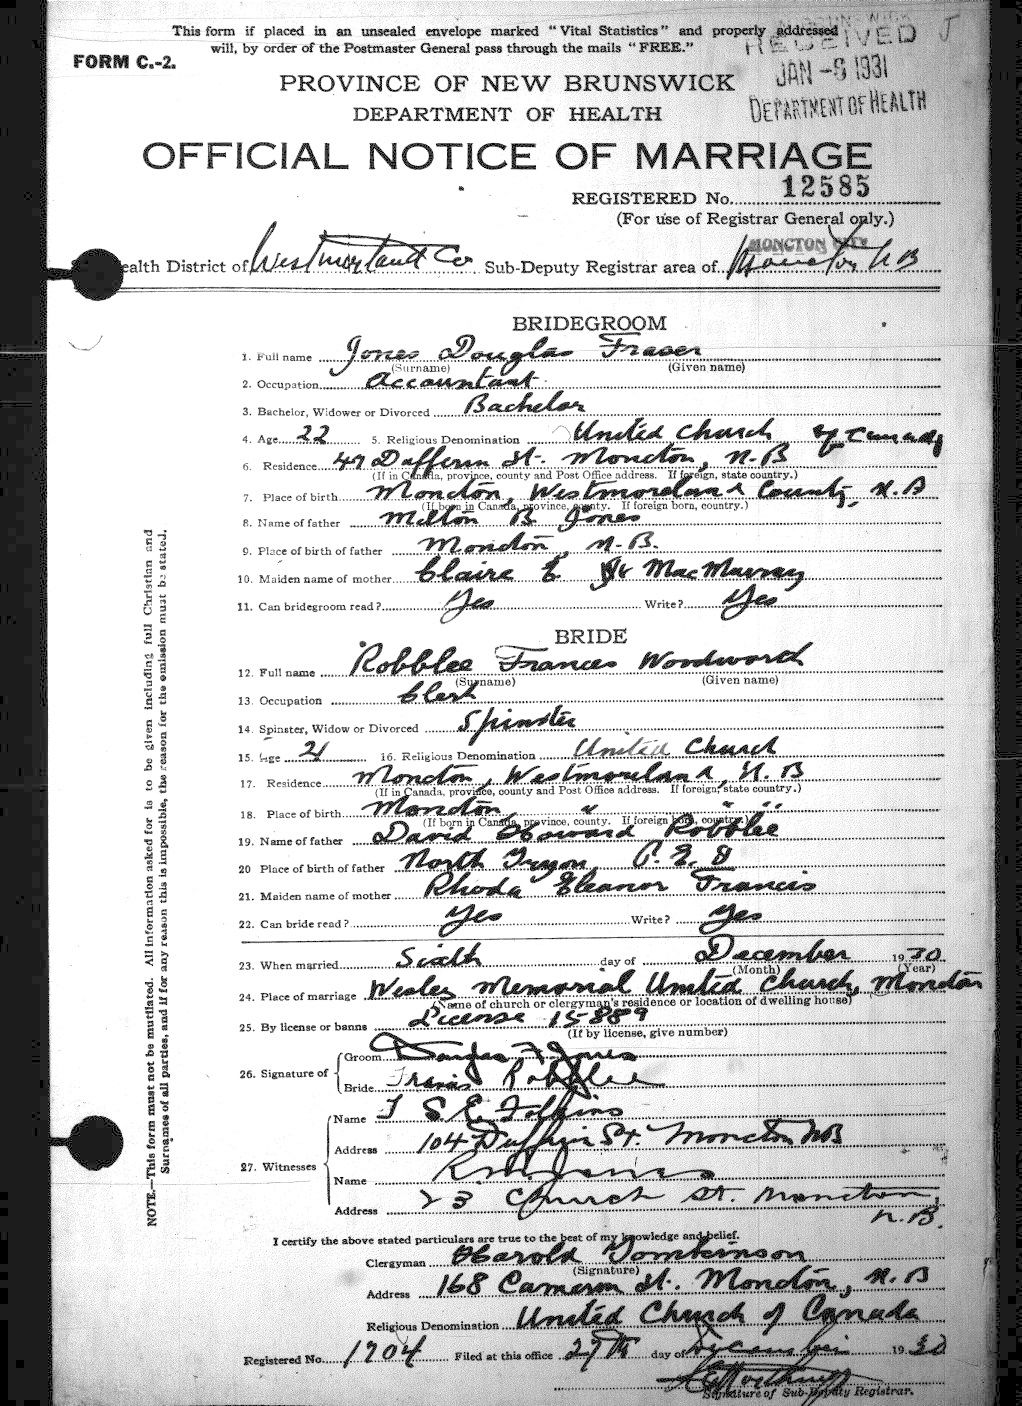 This form if placed in an unsealed envelope marked "Vital Statistics" and properly addressed
will, by order of the Postmaster General pass through the mails "FREE."
FORM C.-2.
RECEIVED
JAN -6 1931
DEPARTMENT OF HEALTH
PROVINCE OF NEW BRUNSWICK
DEPARTMENT OF HEALTH
OFFICIAL NOTICE OF MARRIAGE
REGISTERED No. 12585
(For use of Registrar General only.)
MONCTON CITY
ealth District of Westmorland Co Sub-Deputy Registrar area of Moncton N B
BRIDEGROOM
1. Full name Jones Douglas Fraser
(Surname) (Given name)
2. Occupation Accountant
3. Bachelor, Widower or Divorced Bachelor
4. Age 22 5. Religious Denomination United Church of Canada
6. Residence 47 Dufferin St. Moncton, N.B
(If in Canada, province, county and Post Office address. If foreign, state country.)
7. Place of birth Moncton, Westmoreland County, N.B
(If born in Canada, province, county. If foreign born, country.)
8. Name of father Milton B Jones
9. Place of birth of father Moncton, N.B.
10. Maiden name of mother Claire E. MacMurray
11. Can bridegroom read? Yes Write? Yes
BRIDE
12. Full name Robblee Frances Woodworth
(Surname) (Given name)
13. Occupation Clerk
14. Spinster, Widow or Divorced Spinster
15. Age 21 16. Religious Denomination United Church
17. Residence Moncton, Westmoreland, N.B
(If in Canada, province, county and Post Office address. If foreign, state country.)
18. Place of birth Moncton " " "
(If born in Canada, province, county. If foreign born, country.)
19. Name of father David Howard Robblee
20 Place of birth of father North Tryon, P.E.I
21. Maiden name of mother Rhoda Eleanor Francis
22. Can bride read? Yes Write? Yes
23. When married Sixth day of December 1930
(Month) (Year)
24. Place of marriage Wesley Memorial United Church, Moncton
(Name of church or clergyman's residence or location of dwelling house)
25. By license or banns License 15889
(If by license, give number)
26. Signature of
Groom Douglas F. Jones
Bride Frances Robblee
27. Witnesses
Name S. E. Folkins
Address 104 Dufferin St. Moncton NB
Name Jones
Address 23 Church St. Moncton, N.B.
I certify the above stated particulars are true to the best of my knowledge and belief.
Clergyman Harold Tomkinson
(Signature)
Address 168 Cameron St. Moncton, N.B
Religious Denomination United Church of Canada
Registered No. 1704 Filed at this office 27th day of December 1930
Signature of Sub-Deputy Registrar.
NOTE.—This form must not be mutilated. All information asked for is to be given including full Christian and
Surnames of all parties, and if for any reason this is impossible, the reason for the omission must be stated.